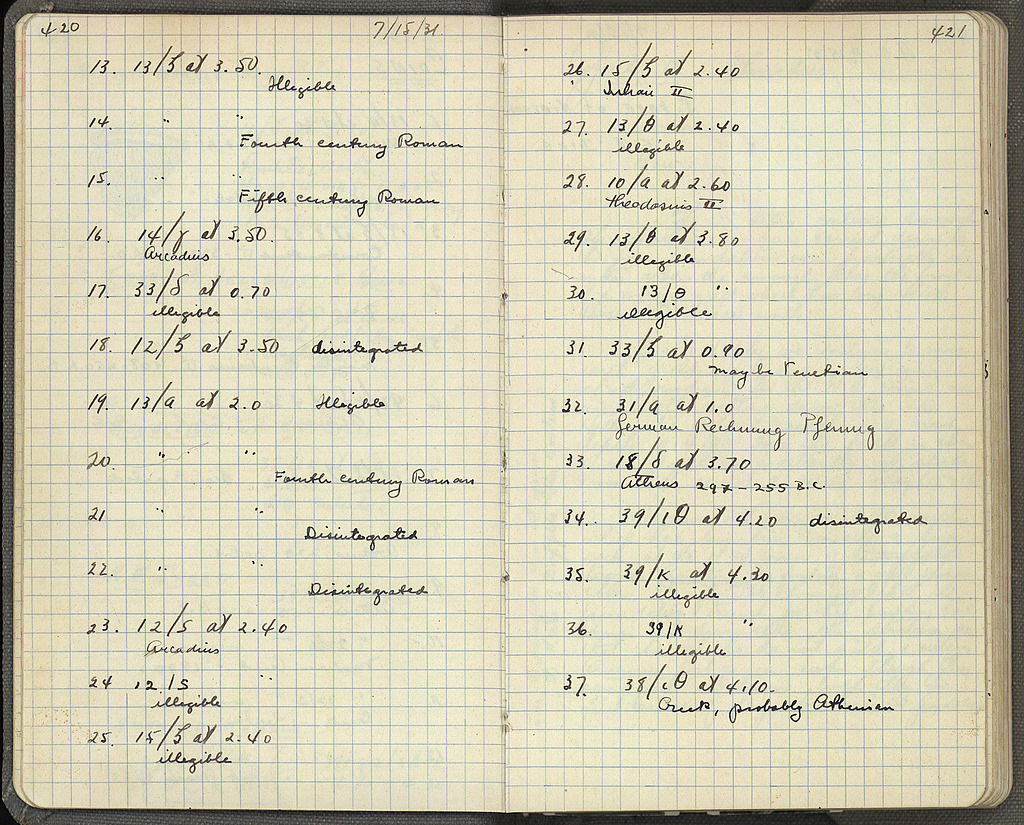 420
7/15/31
13. 13/ζ at 3.50.
Illegible
14. " "
Fourth century Roman
15. " "
Fifth century Roman
16. 14/γ at 3.50.
Arcadius
17. 33/δ at 0.70
illegible
18. 12/ζ at 3.50 disintegrated
19. 13/a at 2.0 Illegible
20. " "
Fourth century Roman
21 " "
Disintegrated
22. " "
Disintegrated
23. 12/5 at 2.40
Arcadius
24 12/5 "
illegible
25. 15/ζ at 2.40
illegible
421
26. 15/ζ at 2.40
II
27. 13/θ at 2.40
illegible
28. 10/a at 2.60
Theodosius II
29. 13/θ at 3.80
illegible
30. 13/θ "
illegible
31. 33/ζ at 0.90
maybe Venetian
32. 31/a at 1.0
German Rechnung Pfennig
33. 18/δ at 3.70
Athens 297-255 B.C.
34. 39/ιθ at 4.20 disintegrated
35. 39/κ at 4.30
illegible
36. 39/κ "
illegible
37. 38/ιθ at 4.10.
Greek, probably Athenian